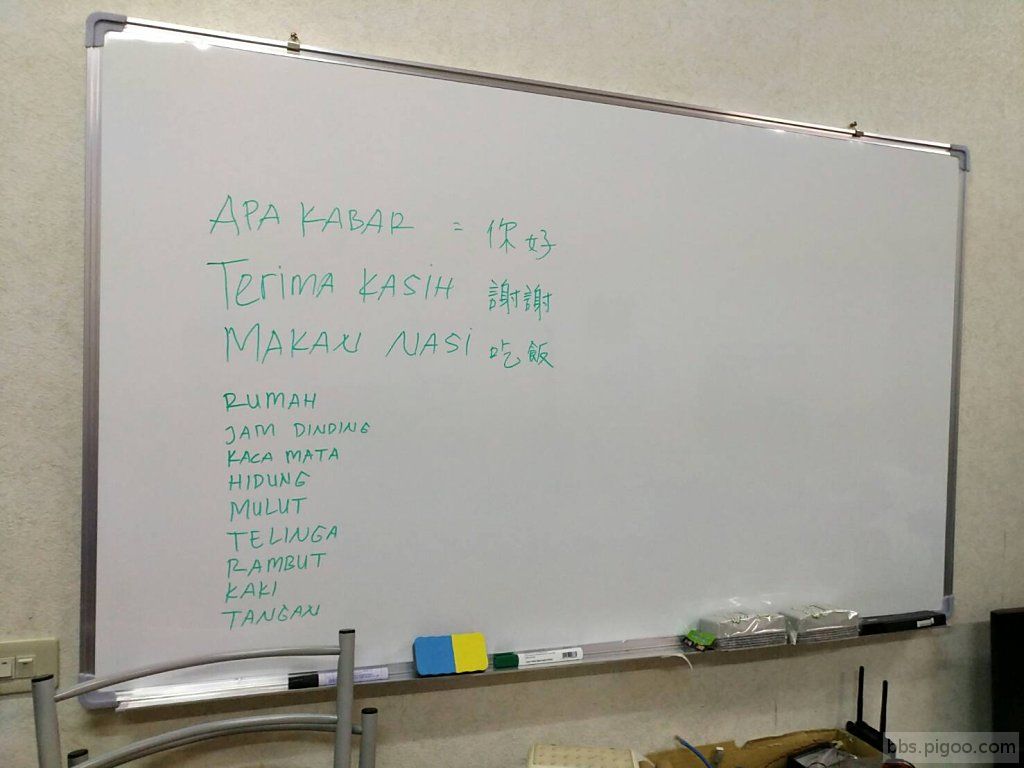 APA KABAR = 你好
Terima KASiH 謝謝
MAKAN NASi 吃飯
RUMAH
JAM DINDING
KACA MATA
HIDUNG
MULUT
TELINGA
RAMBUT
KAKI
TANGAN
bbs.pigoo.com